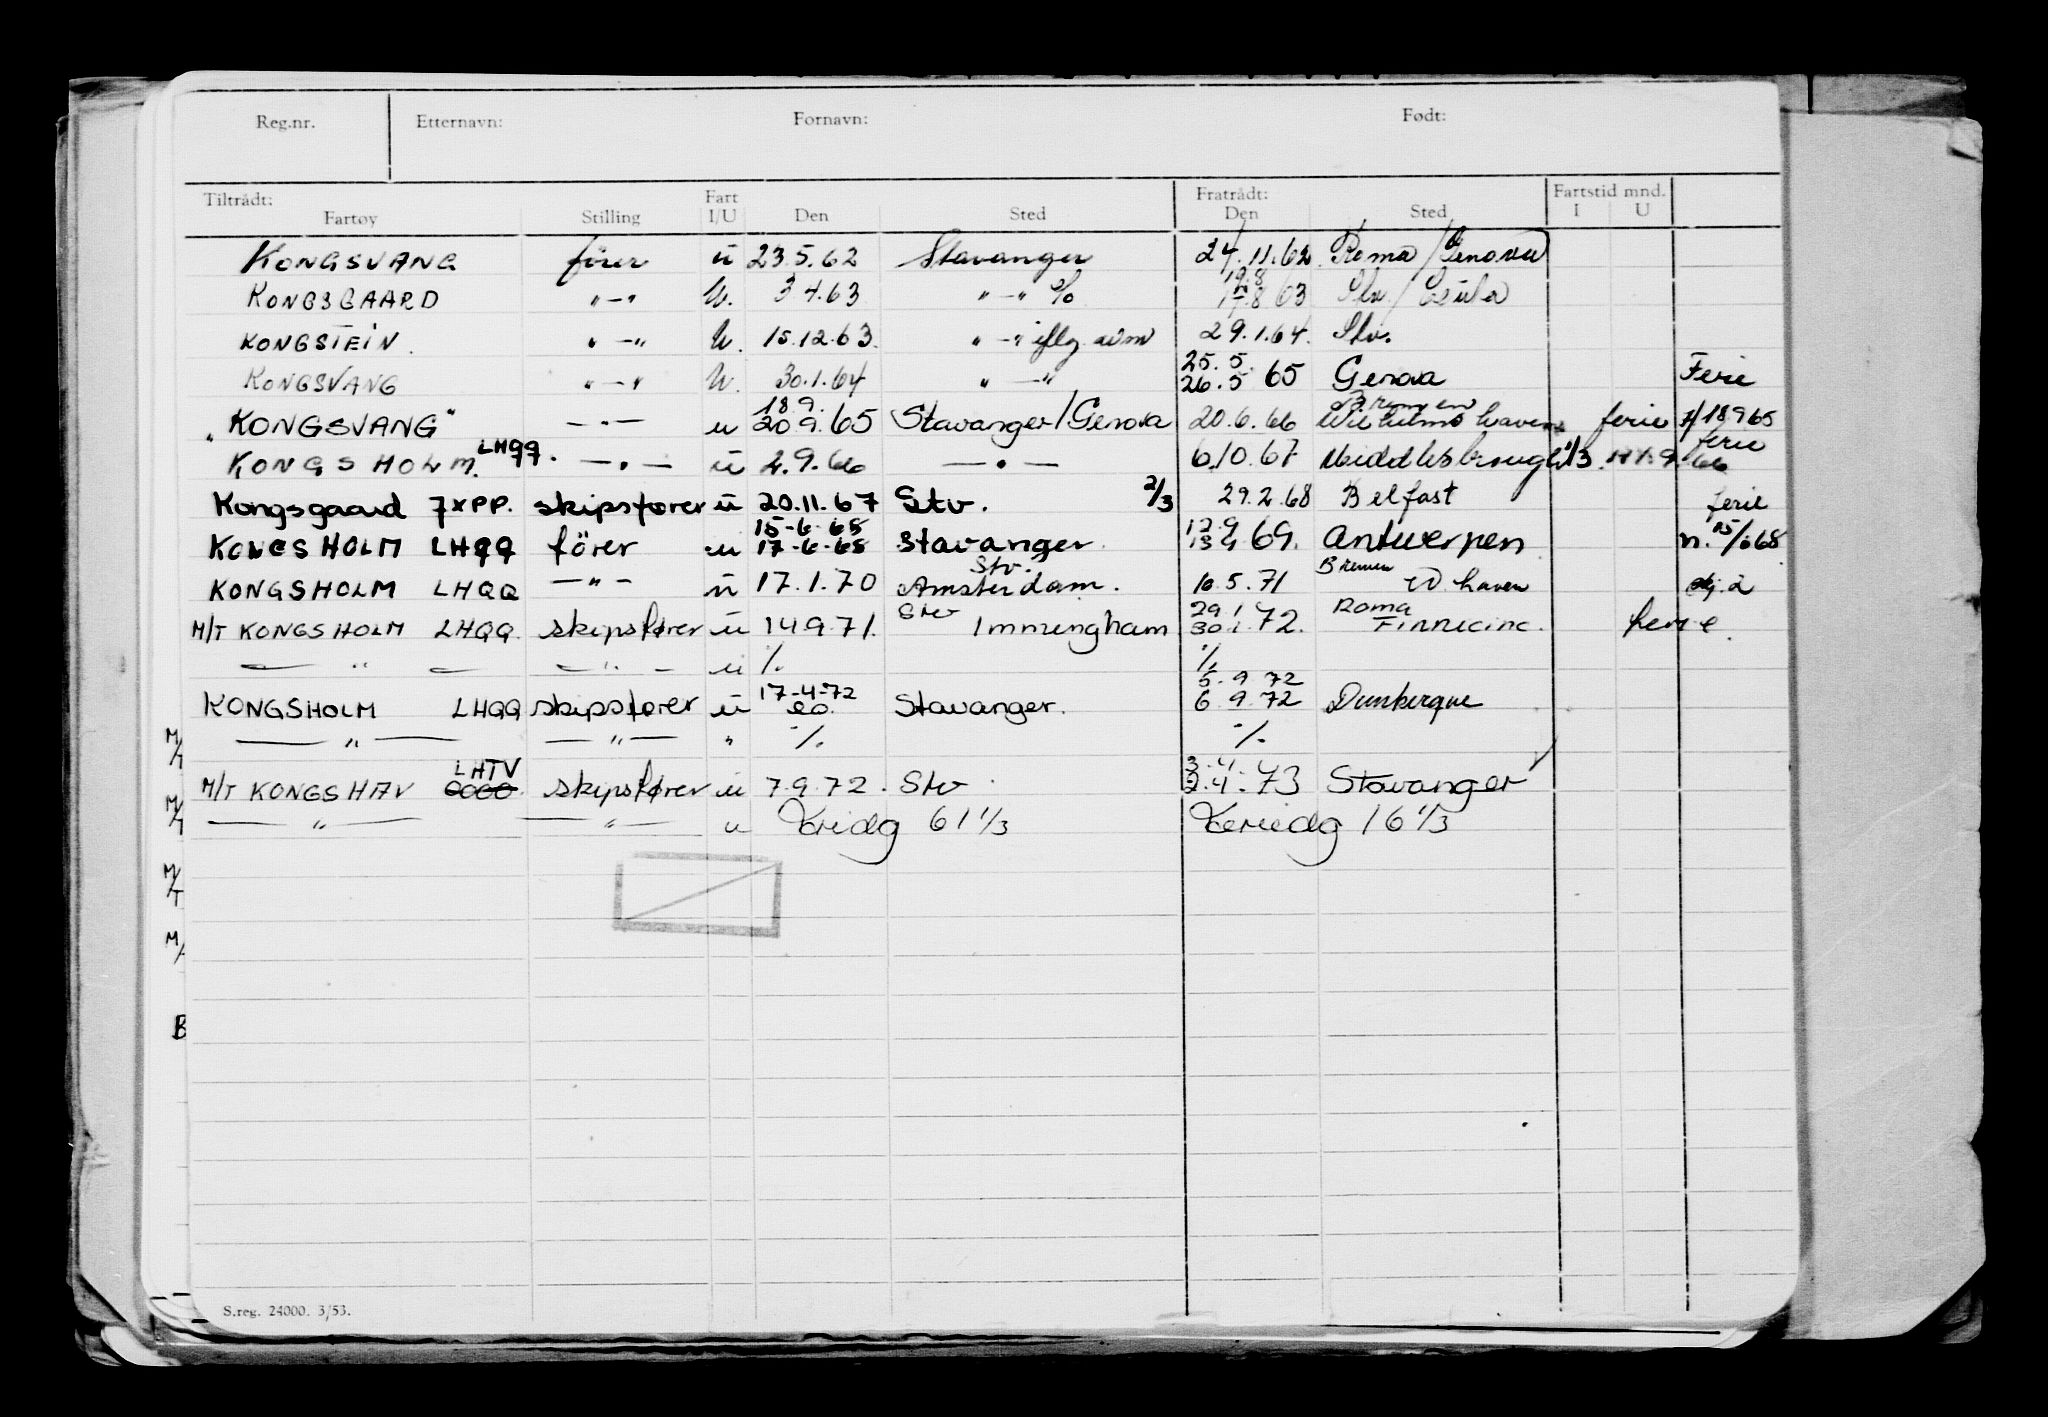 Reg.nr. Etternavn: Fornavn: Født:
Tiltrådt: Fart Fratrådt: Fartstid mnd.
Fartøy Stilling I/U Den Sted Den Sted I U
KONGSVANG fører ü 23.5.62 Stavanger 24.11.62 Roma/Genova
KONGSGAARD "-" U. 3 4.63 "-" % 19.8 17.8 63 Stv /
KONGSTEIN "-" U. 15.12.63. "-" 29.1.64. Stv.
KONGSVANG "-" U. 30.1.64 "-" 25.5. 26.5 65 Genova Ferie
"KONGSVANG" -"- u 18 9. 20 9. 65 Stavanger/Genova 20.6.66 Bremen Wilhelmshaven ferie f/18965
KONGSHOLM. LHQQ. -"- ü 2.9.66 -"- 6.10.67 Middlesbrough 1/3 ferie 66
Kongsgaard 7XPP. skipsfører ü 20.11.67 Stv. 2/3 29.2.68 Belfast ferie
KONGSHOLM LHQQ fører u 15-6-65 17-6-68 Stavanger. 12.9 13 9 69. Antwerpen n. 15/668
KONGSHOLM LHQQ -"- ü 17.1.70 Stv. Amsterdam. 10.5.71 Bremen W.haven
M/T KONGSHOLM LHQQ. skipsfører ü 14.9.71. Stv Immingham 29.1 30.1. 72. Roma ferie.
-"- - -"- u %. %.
KONGSHOLM LHQQ skipsfører ü 17-4-72 20. Stavanger. 5.9 72 6.9.72 Dunkerque
M/T -"- -"- " %. %.
M/T KONGSHAV LHTV skipsfører ü 7.9.72. Stv 3.4. 2.4. 73 Stavanger
M/T -"- -"- u 61 1/3 Feriedg 16 1/3
M/T
M/
B
S.reg. 24000. 3/53.